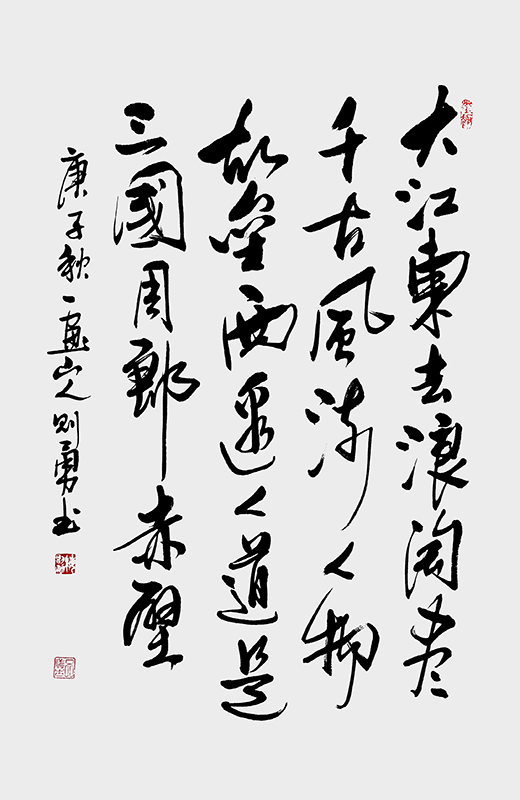 大江东去浪淘尽
千古風流人物
故壘西邊人道是
三國周郎赤壁
庚子秋一畫山人則勇书